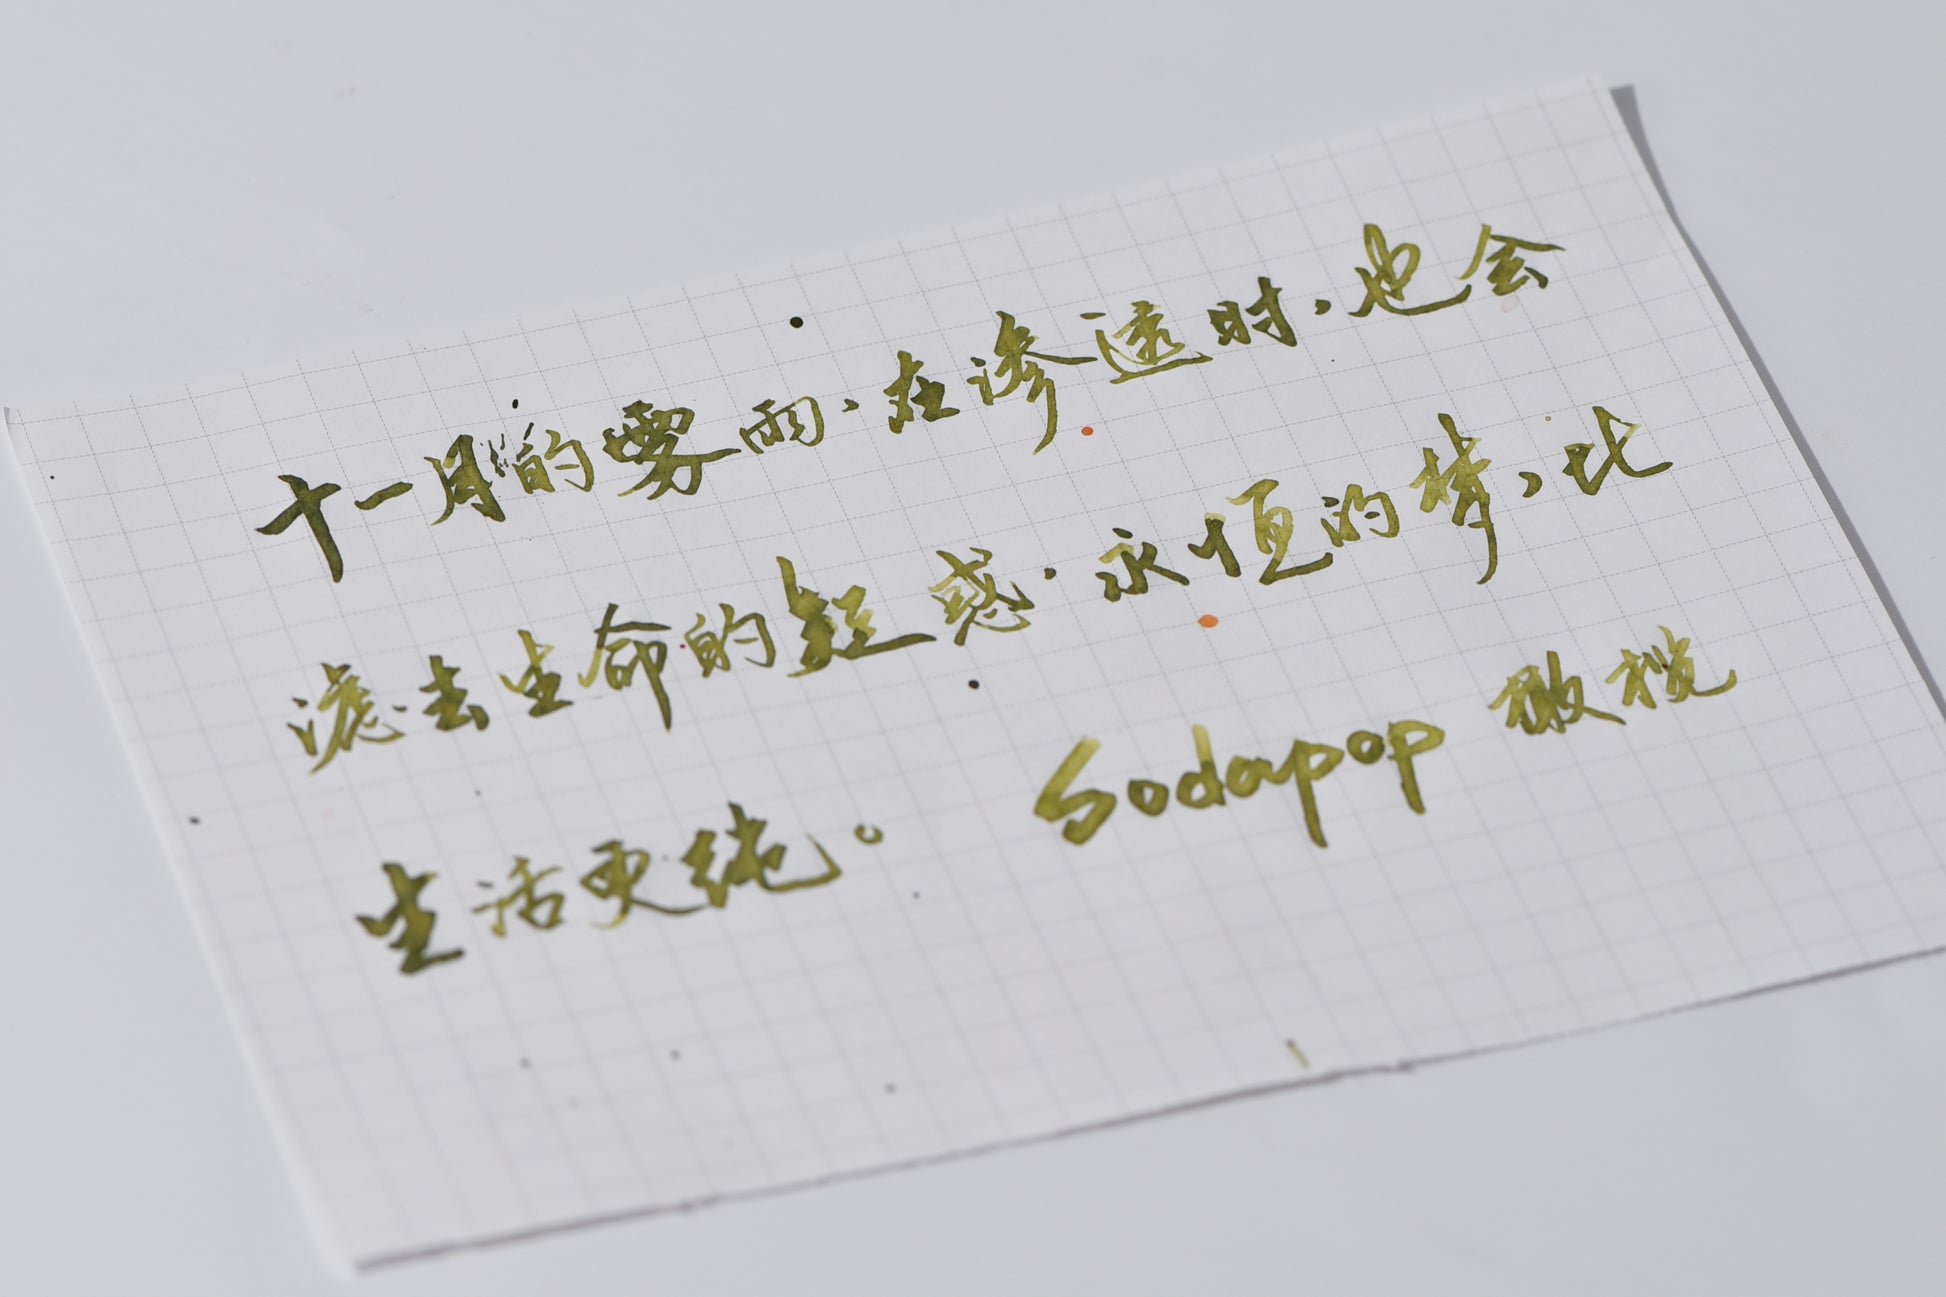 十一月的雾雨,在渗透时,也会
滤去生命的疑惑.永恒的梦,比
生活更纯。 Sodapop 橄榄